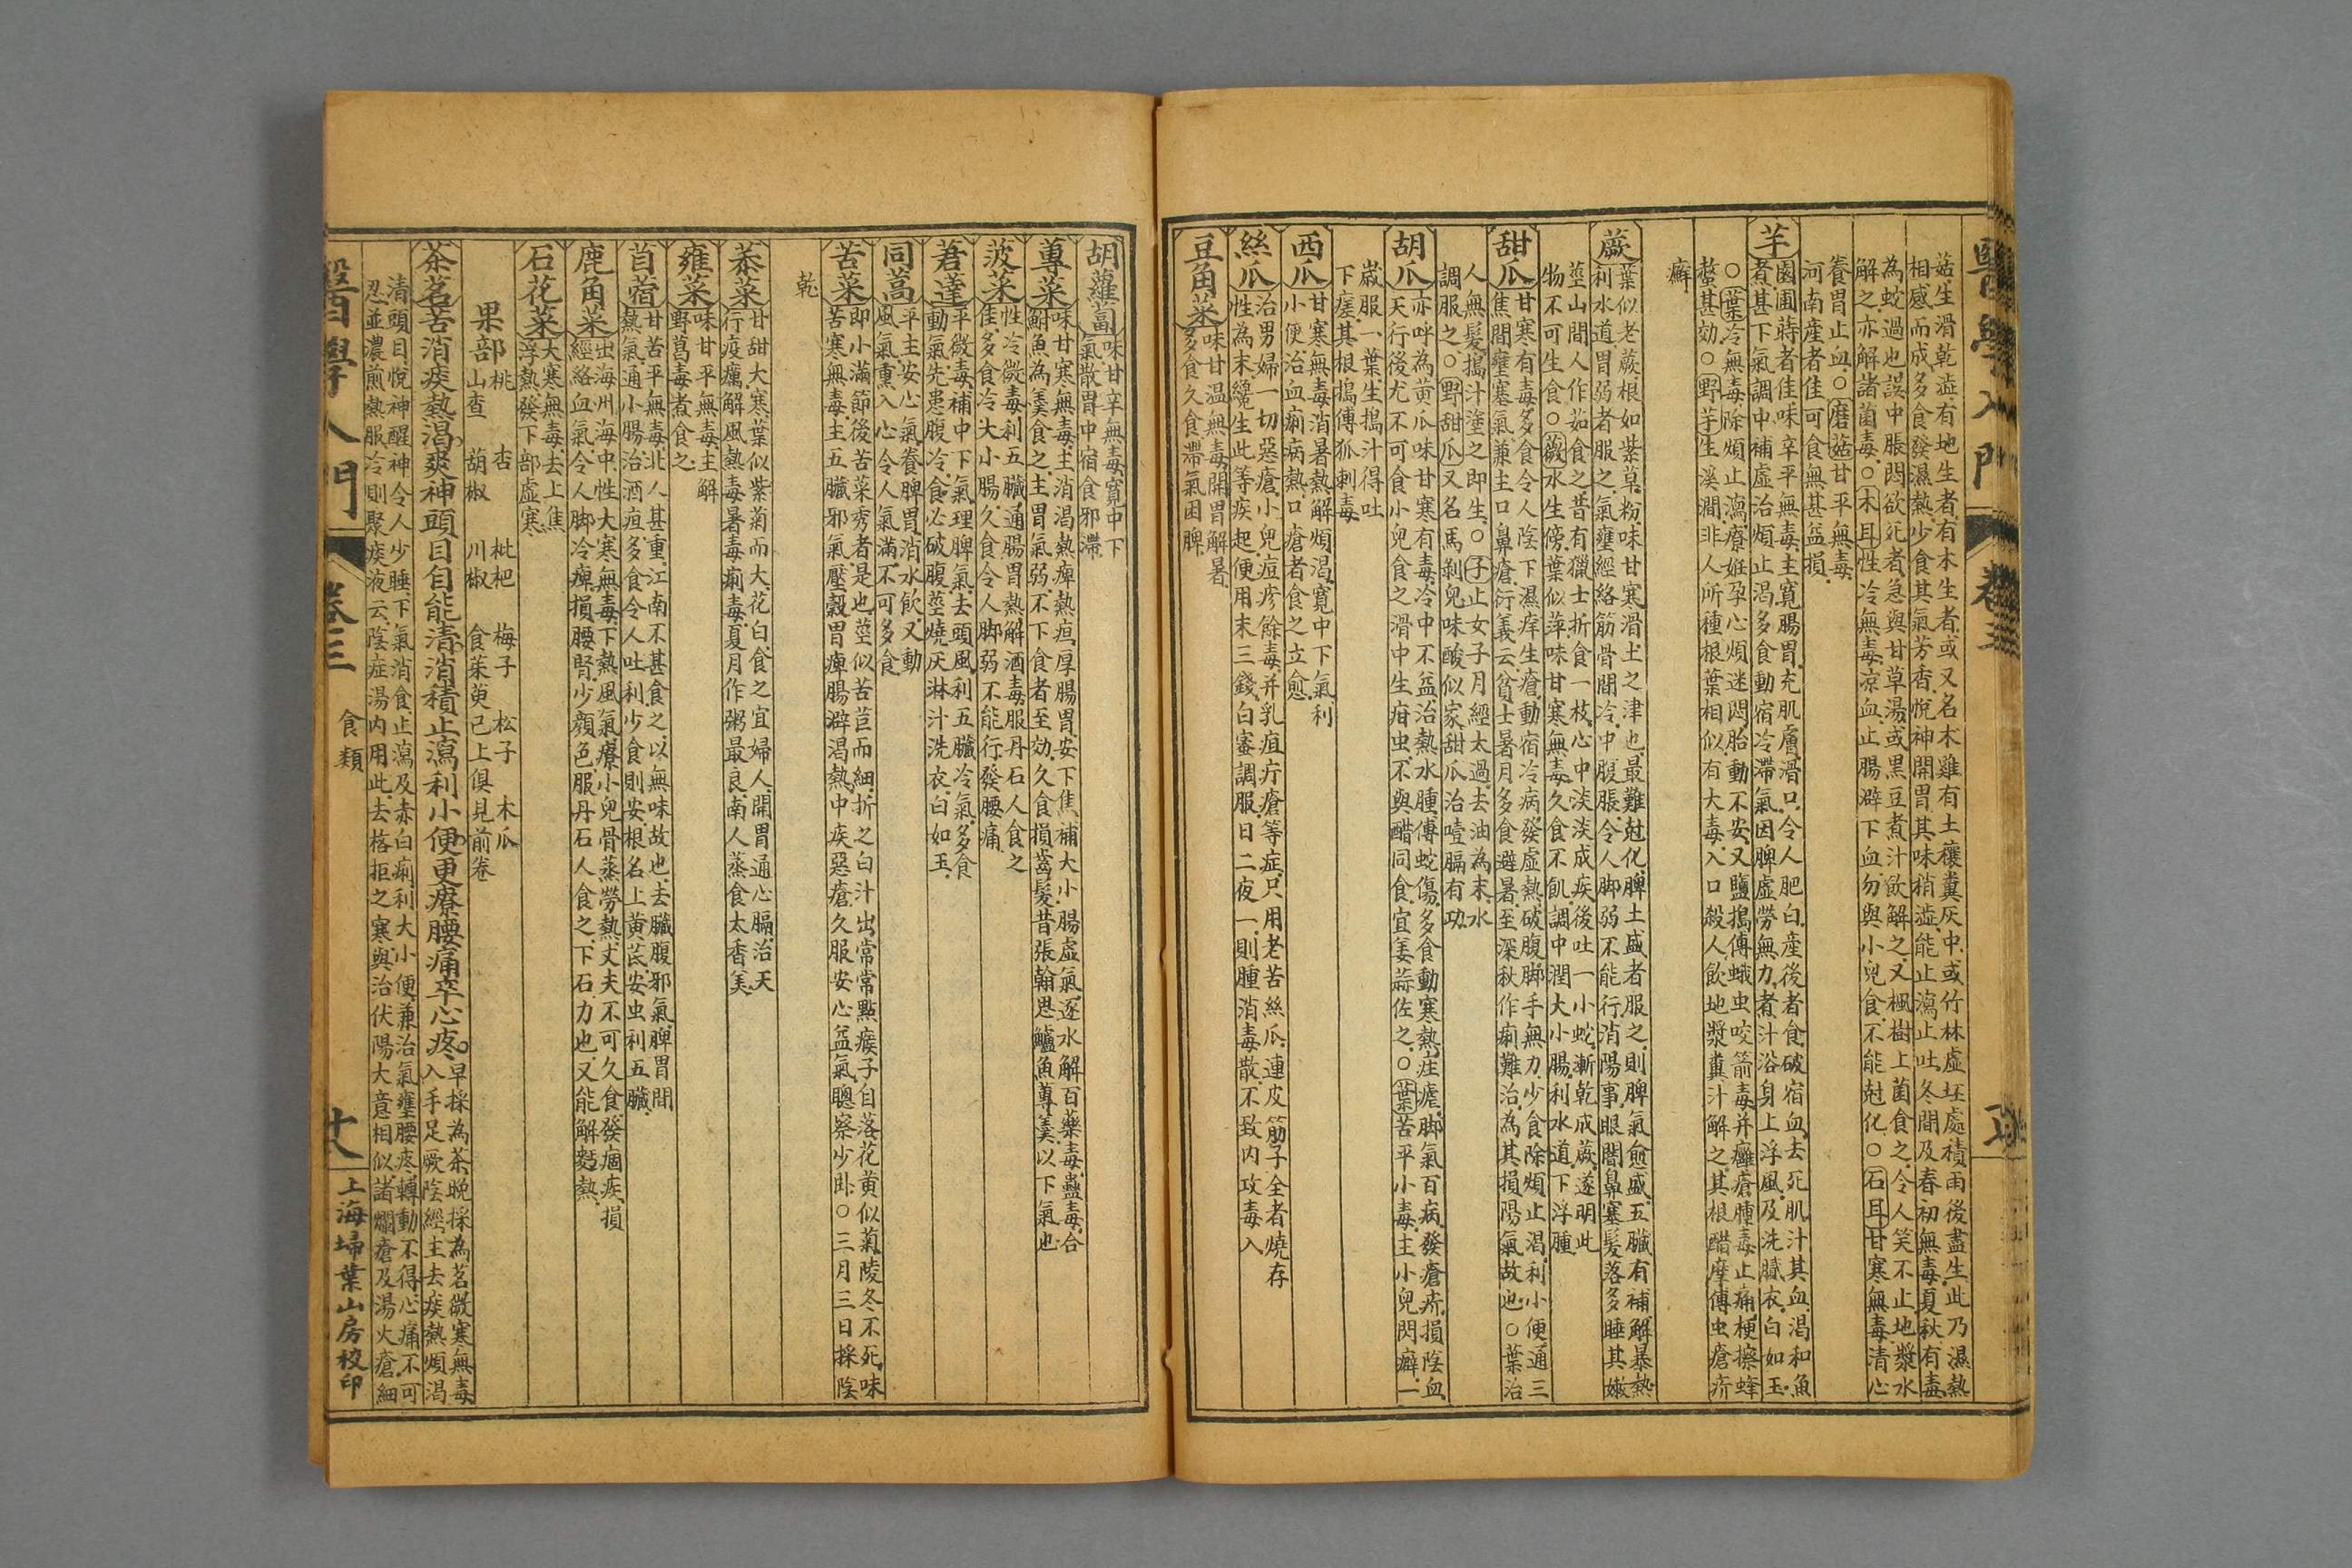 醫學入門
卷三
菇生滑乾澁有地生者有木生者或又名木雞有土蘑糞灰中或竹林虛坯處積雨後盡生此乃濕熱
相感而成多食發濕熱少食其氣芳香悅神開胃其味稍澁能止瀉止吐冬間及春初無毒夏秋有毒
為蛇過也誤中脹悶欲死者急與甘草湯或黑豆煮汁飲解之又楓樹上菌食之令人笑不止地漿水
解之亦解諸菌毒○木耳性冷無毒凉血止腸澼下血勿與小兒食不能尅化○石耳甘寒無毒清心
養胃止血○磨菇甘平無毒
河南產者佳可食無甚益損
芋
園圃蒔者佳味辛平無毒主寬腸胃充肌膚滑口令人肥白產後者食破宿血去死肌汁其血渴和魚
煮甚下氣調中補虛治煩止渴多食動宿冷滯氣因脾虛勞無力者汁浴身上浮風及洗膩衣白如玉
○葉冷無毒除煩止瀉療姙孕心煩迷悶胎動不安又鹽搗傅蛾虫咬箭毒并癰瘡腫毒止痛梗擦蜂
螫甚効○野芋生溪澗非人所種根葉相似有大毒入口殺人飲地漿糞汁解之其根醋摩傅虫瘡疥
癬
蕨
葉似老蕨根如紫草粉味甘寒滑土之津也最難尅化脾土盛者服之則脾氣愈盛五臟有補解暴熱
利水道胃弱者服之氣壅經絡筋骨間冷中腹脹令人脚弱不能行消陽事眼闇鼻塞髮落多睡其嫩
莖山間人作茹食之昔有獵士折食一枝心中淡淡成疾後吐一小蛇漸乾成蕨遂明此
物不可生食○薇水生傍葉似萍味甘寒無毒久食不飢調中潤大小腸利水道下浮腫
甜瓜
甘寒有毒多食令人陰下濕痒生瘡動宿冷病發虛熱破腹脚手無力少食除煩止渴利小便通三
焦間壅塞氣兼主口鼻瘡衍義云貧士暑月多食避暑至深秋作痢難治為其損陽氣故也○葉治
人無髮搗汁塗之即生○子止女子月經太過去油為末水
調服之○野甜瓜又名馬剝兒味酸似家甜瓜治噎膈有功
胡瓜
亦呼為黃瓜味甘寒有毒冷中不益治熱水腫傅蛇傷多食動寒熱疰瘧脚氣百病發瘡疥損陰血
天行後尤不可食小兒食之滑中生疳虫不與醋同食宜姜蒜佐之○葉苦平小毒主小兒閃癖一
歲服一葉生搗汁得吐
下瘥其根搗傅狐刺毒
西瓜
甘寒無毒消暑熱解煩渴寬中下氣利
小便治血痢病熱口瘡者食之立愈
絲瓜
治男婦一切惡瘡小兒痘疹餘毒并乳疽疔瘡等症只用老苦絲瓜連皮筋子全者燒存
性為末纔生此等疾起便用末三錢白蜜調服日二夜一則腫消毒散不致內攻毒入
豆角菜
味甘溫無毒開胃解暑
多食久食滯氣困脾
胡蘿蔔
味甘辛無毒寬中下
氣散胃中宿食邪滯
蓴菜
味甘寒無毒主消渴熱痺熱疸厚腸胃安下焦補大小腸虛氣逐水解百藥毒蠱毒合
鮒魚為羹食之主胃氣弱不下食者至効久食損齒髮昔張翰思鱸魚蓴羹以下氣也
菠菜
性冷微毒利五臟通腸胃熱解酒毒服丹石人食之
佳多食冷大小腸久食令人脚弱不能行發腰痛
莙薘
平微毒補中下氣理脾氣去頭風利五臟冷氣多食
動氣先患腹冷食必破腹莖燒灰淋汁洗衣白如玉
同蒿
平主安心氣養脾胃消水飲又動
風氣熏入心令人氣滿不可多食
苦菜
即小滿節後苦菜秀者是也莖似苦苣而細折之白汁出常常點瘊子自落花黃似菊陵冬不死味
苦寒無毒主五臟邪氣壓穀胃痺腸澼渴熱中疾惡瘡久服安心益氣聰察少卧○三月三日採陰
乾
菾菜
甘甜大寒葉似紫菊而大花白食之宜婦人開胃通心膈治天
行疫癘解風熱毒暑毒痢毒夏月作粥最良南人蒸食太香美
雍菜
味甘平無毒主解
野葛毒煮食之
苜蓿
甘苦平無毒北人甚重江南不甚食之以無味故也去臟腹邪氣脾胃間
熱氣通小腸治酒疸多食令人吐利少食則安根名上黃芪安虫利五臟
鹿角菜
出海州海中性大寒無毒下熱風氣療小兒骨蒸勞熱丈夫不可久食發痼疾損
經絡血氣令人脚冷痺損腰腎少顏色服丹石人食之下石力也又能解麵熱
石花菜
大寒無毒去上焦
浮熱發下部虛寒
果部 桃 杏 枇杷 梅子 松子 木瓜
山查 胡椒 川椒 食茱萸已上俱見前卷
茶茗苦消痰熱渴爽神頭目自能清消積止瀉利小便更療腰痛卒心疼
早採為茶晚採為茗微寒無毒
入手足厥陰經主去痰熱煩渴
清頭目悅神醒神令人少睡下氣消食止瀉及赤白痢利大小便兼治氣壅腰疼轉動不得心痛不可
忍並濃煎熱服冷則聚痰液云陰症湯內用此去格拒之寒與治伏陽大意相似諸爛瘡及湯火瘡細
醫學入門
卷三
食類
十八
上海埽葉山房校印